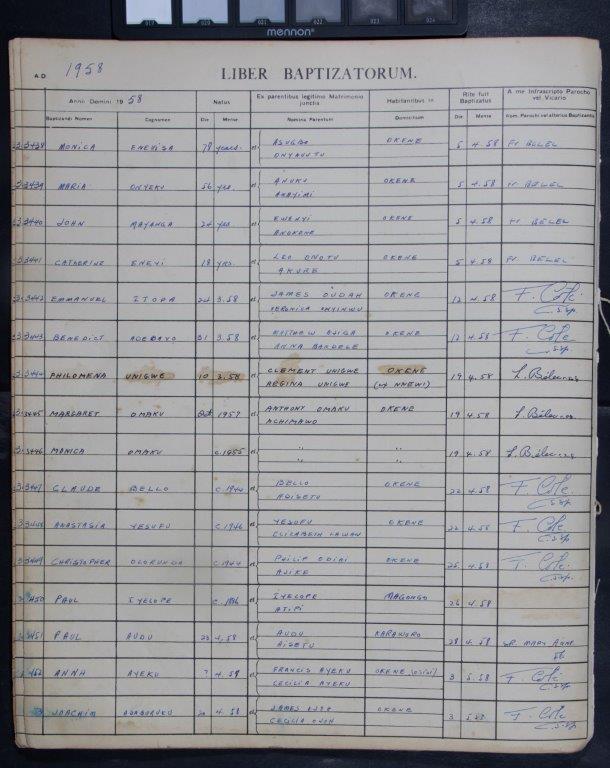 019 020 021 022 023 024
mennon
A.D. 1958 LIBER BAPTIZATORUM.
Anno Domini 1958 Natus Ex parentibus legitimo Matrimonio junctis Habitantibus in Rite fuit Baptizatus A me Infrascripto Parocho vel Vicario
Baptizandi Nomen Cognomen Die Mense Nomina Parentum Domicilium Die Mense Nom. Parochi vel alterius Baptizantis
3438 MONICA ENEVISA 78 years. et OKENE 5 4.58 Fr BELEL
3439 MARIA ONYEKU 56 yrs. ANUKU et OKENE 5 4.58 Fr BELEL
3440 JOHN MAYANGA 24 yrs et OKENE 5 4.58 Fr BELEL
3441 CATHERINE ENEYI 18 yrs. LEO ONOTU et AKURE OKENE 5 4.58 Fr BELEL
3442 EMMANUEL ITOPA 24 3.58 JAMES OUDAH et VERONICA OKENE 12 4.58 F. Cole C.S.Sp.
3443 BENEDICT ADEBAYO 31 3.58 MATTHEW et ANNA BANDELE OKENE 12 4.58 F. Cole C.S.Sp.
3444 PHILOMENA UNIGWE 10 3.58 CLEMENT UNIGWE et REGINA UNIGWE OKENE (of NNEWI) 19 4.58
3445 MARGARET OMAKU Oct 1957 ANTHONY OMAKU et ACHIMAWO OKENE 19 4.58
3446 MONICA OMAKU c.1955 " et " " 19 4.58
3447 CLAUDE BELLO c.1940 BELLO et ADISETU OKENE 22 4.58 F. Cole C.S.Sp.
3448 ANASTASIA YESUFU c.1946 YESUFU et ELIZABETH LAWANI OKENE 22 4.58 F. Cole C.S.Sp.
3449 CHRISTOPHER OLORUNDA c.1944 PHILIP et AJIKE OKENE 25 4.58 F. Cole C.S.Sp.
3450 PAUL IYELOPE IYELOPE et ATIPI MAGONGO 26 4.58
3451 PAUL AUDU 4.58 AUDU et AISETU KARAWORO 28 4.58 SR. MARY
3452 ANNA AYEKU 7 4.58 FRANCIS AYEKU et CECILIA AYEKU OKENE 3 5.58 F. Cole C.S.Sp.
JOACHIM 4.58 JAMES et CECILIA OJOH OKENE 3 5.58 F. Cole C.S.Sp.